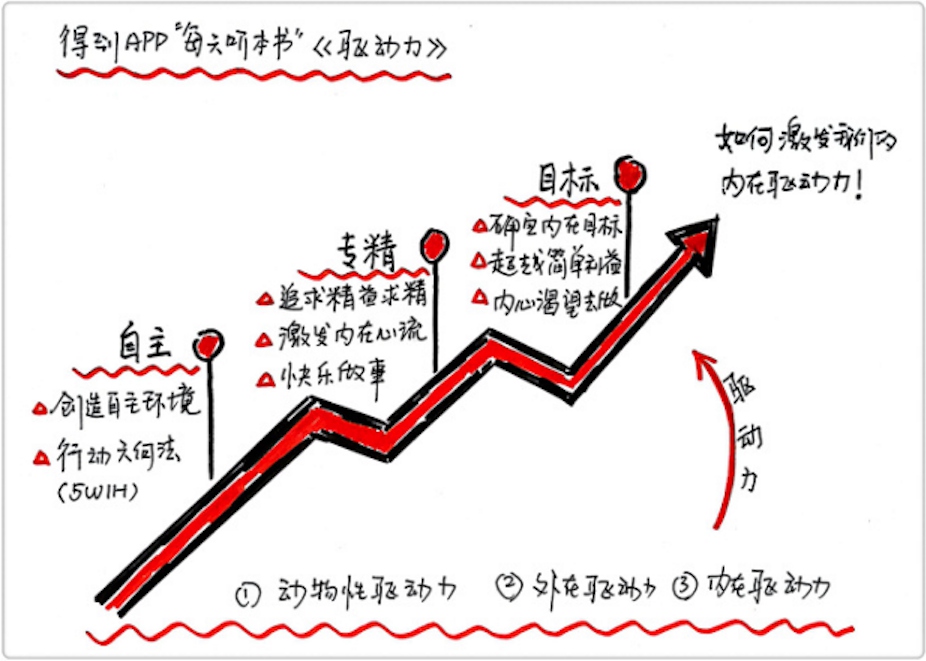 得到APP“每天听本书”《驱动力》
如何激发我们的
内在驱动力！
目标
确定内在目标
超越简单利益
内心渴望去做
专精
追求精益求精
激发内在心流
快乐做事
自主
创造自主环境
行动六何法
(5W1H)
驱动力
① 动物性驱动力 ② 外在驱动力 ③ 内在驱动力